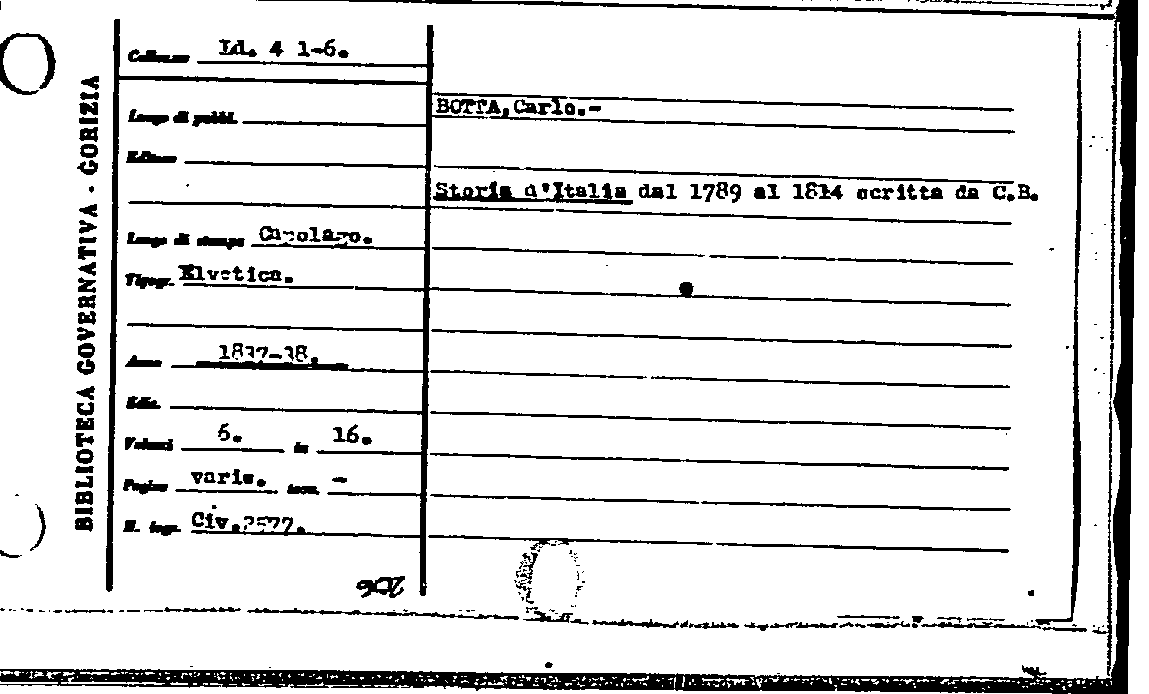 BIBLIOTECA GOVERNATIVA - GORIZIA
Collocaz. Ld. 4 1-6.
Luogo di pubbl.
Editore
Luogo di stampa Capolago.
Tipogr. Elvetica.
Anno 1837-38.
Ediz.
Volumi 6. in 16.
Pagine varie. tavv. -
N. ingr. Civ.
BOTTA,Carlo.-
Storia d'Italia dal 1789 al 1814 scritta da C.B.